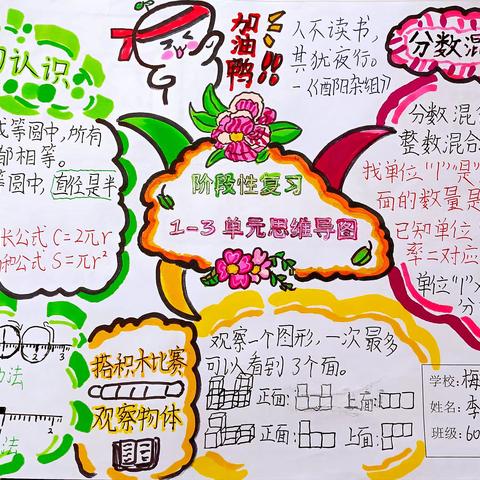 认识
加油鸭!!!
人不读书,
其犹夜行。
—《酉阳杂组》
分数混
或等圆中,所有
都相等。
等圆中,直径是半
长公式 C=2πr
面积公式 S=πr²
阶段性复习
1-3单元思维导图
分数混合
整数混合
找单位"1""是"
面的数量是
已知单位
率=对应
单位"1"×
分
1 2 3
法
法
搭积木比赛
观察物体
观察一个图形,一次最多
可以看到3个面。
正面: 上面:
正面: 上面:
学校:梅
姓名:李
班级:60